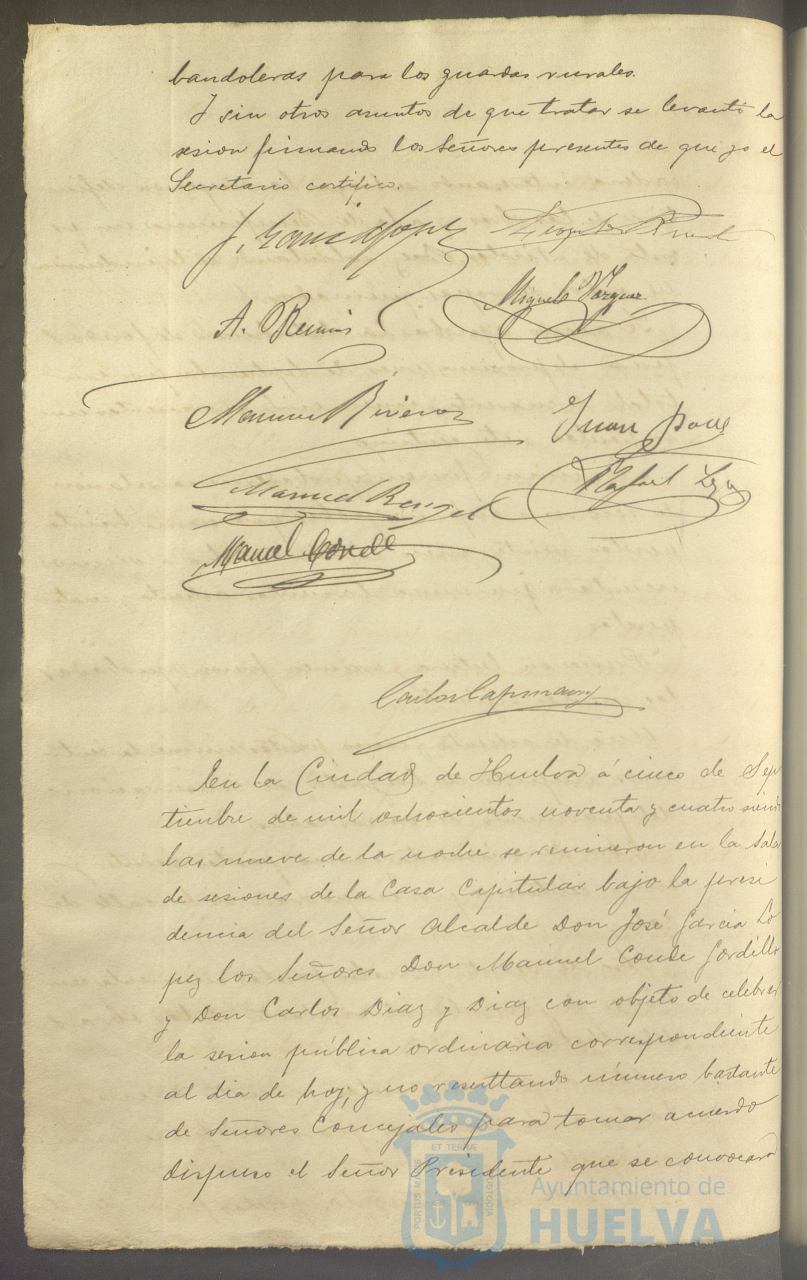 bandoleras para los guardas rurales.
Y sin otros asuntos de que tratar se levantó la
sesion firmando los Señores presentes de que yo el
Secretario certifico.
J. Garcia Lopez
A. 
Miguel Vazquez
Manuel
Juan
Manuel Rengel
Rafael
Manuel Conde
Carlos
En la Ciudad de Huelva á cinco de Sep
tiembre de mil ochocientos noventa y cuatro siendo
las nueve de la noche se reunieron en la Sala
de sesiones de la Casa Capitular bajo la presi
dencia del Señor Alcalde Don José Garcia Lo
pez los Señores Don Manuel Conde Gordillo
y Don Carlos Diaz y Diaz con objeto de celebrar
la sesion pública ordinaria correspondiente
al dia de hoy, y no resultando número bastante
de Señores Concejales para tomar acuerdo
dispuso el Señor Presidente que se convocara
PORTUS MARIS
ET TERRAE
CUSTODIA
Ayuntamiento de
HUELVA